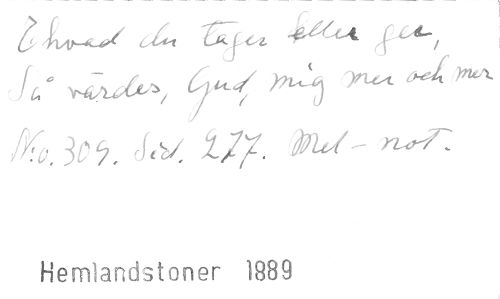 Ehvad du tager eller ger,
Så värdes, Gud, mig mer och mer
N:o. 309. Sid. 277. Mel-not.
Hemlandstoner 1889